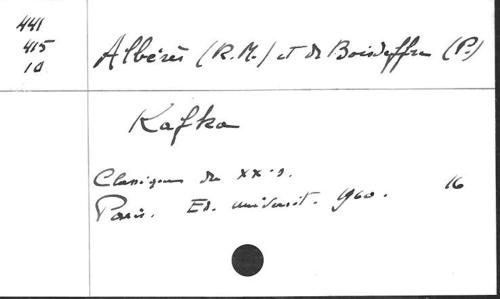 441
415
10
Albérès (R.M.) et de Boisdeffre (P.)
Kafka
Classiques du XX.s.
Paris. Ed. universit. 1960. 16